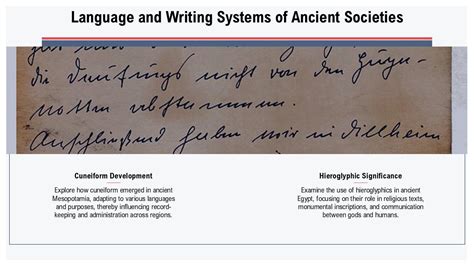 Language and Writing Systems of Ancient Societies
die nicht von den Huge-
notten abstammen.
Anschließend haben wir in Dillheim
Cuneiform Development
Explore how cuneiform emerged in ancient
Mesopotamia, adapting to various languages
and purposes, thereby influencing record-
keeping and administration across regions.
Hieroglyphic Significance
Examine the use of hieroglyphics in ancient
Egypt, focusing on their role in religious texts,
monumental inscriptions, and communication
between gods and humans.